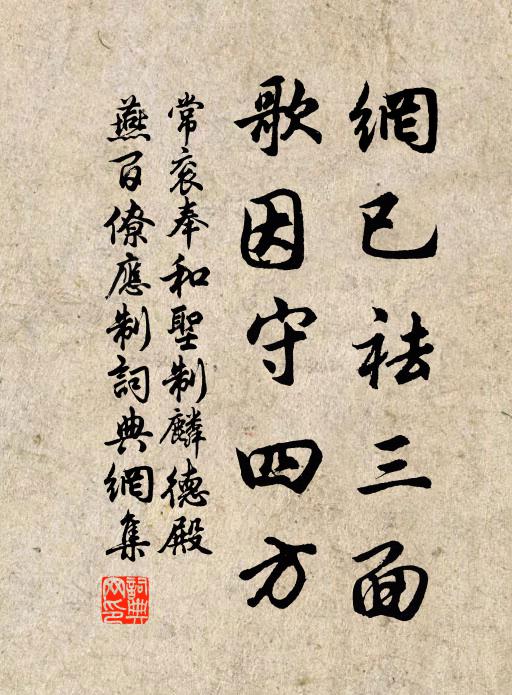 網已祛三面
歌因守四方
常衮奉和聖制麟德殿
燕百僚應制詞典網集
詞典网印